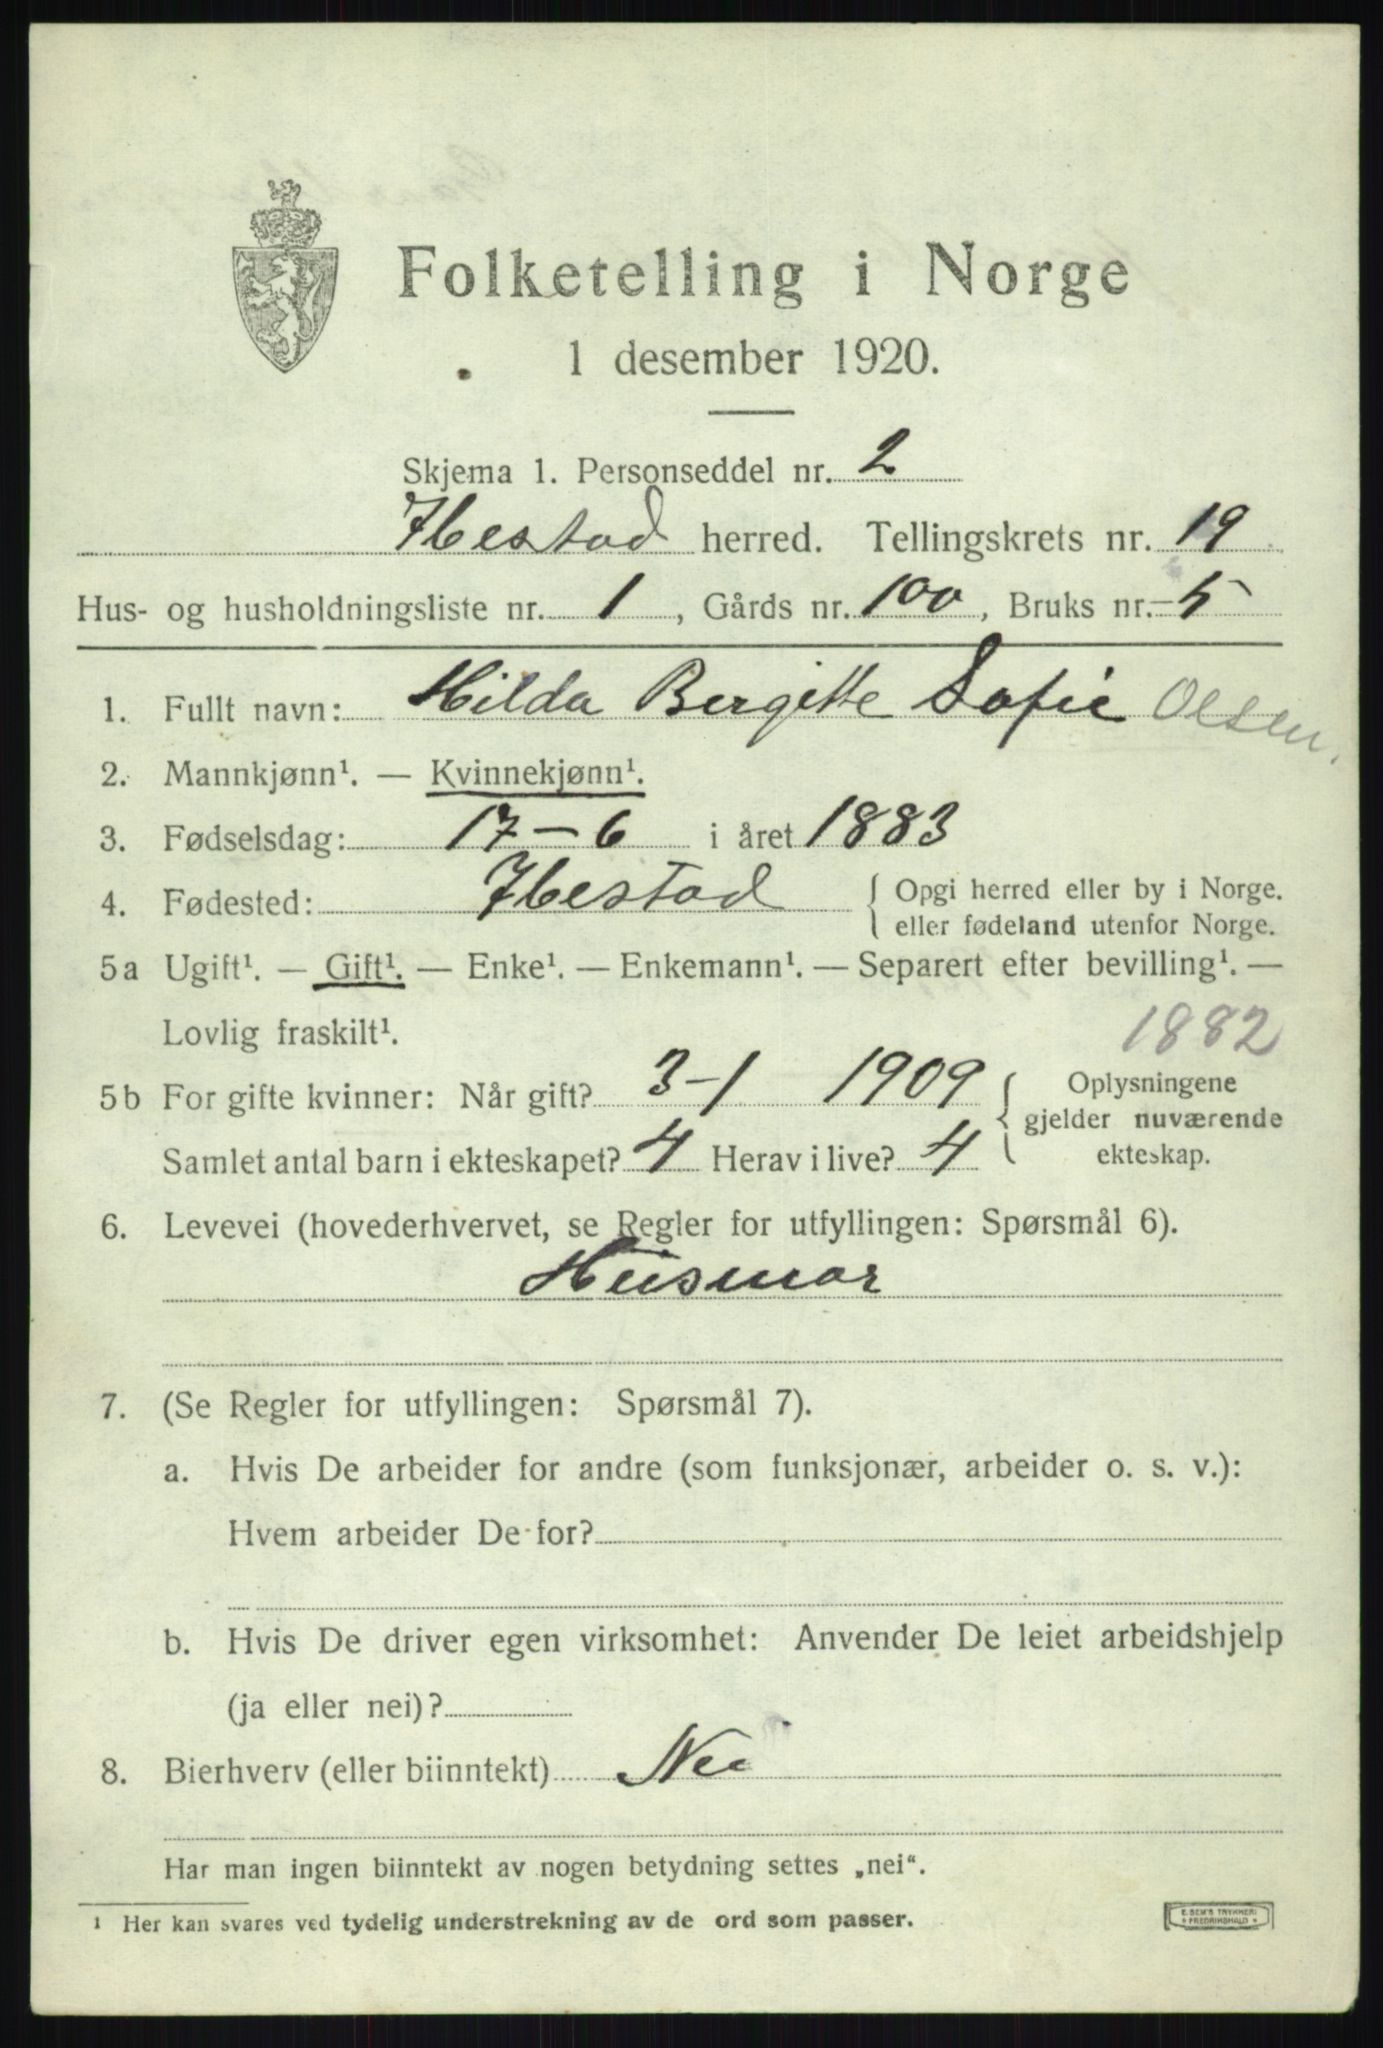 Folketelling i Norge
1 desember 1920.
Skjema 1. Personseddel nr. 2
Ibestad herred. Tellingskrets nr. 19
Hus- og husholdningsliste nr. 1, Gårds nr. 100, Bruks nr. 5
1. Fullt navn: Hilda Bergitte Sofie Olsen.
2. Mannkjønn¹. — Kvinnekjønn¹.
3. Fødselsdag: 17-6 i året 1883
4. Fødested: Ibestad { Opgi herred eller by i Norge.
eller fødeland utenfor Norge.
5a Ugift¹. — Gift¹. — Enke¹. — Enkemann¹. — Separert efter bevilling¹. —
Lovlig fraskilt¹. 1882
5b For gifte kvinner: Når gift? 3-1 1909 { Oplysningene
gjelder nuværende
Samlet antal barn i ekteskapet? 4 Herav i live? 4 ekteskap.
6. Levevei (hovederhvervet, se Regler for utfyllingen: Spørsmål 6).
Husmor
7. (Se Regler for utfyllingen: Spørsmål 7).
a. Hvis De arbeider for andre (som funksjonær, arbeider o. s. v.):
Hvem arbeider De for?
b. Hvis De driver egen virksomhet: Anvender De leiet arbeidshjelp
(ja eller nei)?
8. Bierhverv (eller biinntekt) Nei
Har man ingen biinntekt av nogen betydning settes „nei“.
¹ Her kan svares ved tydelig understrekning av de ord som passer.
E. SEM'S TRYKKERI
* FREDRIKSHALD *